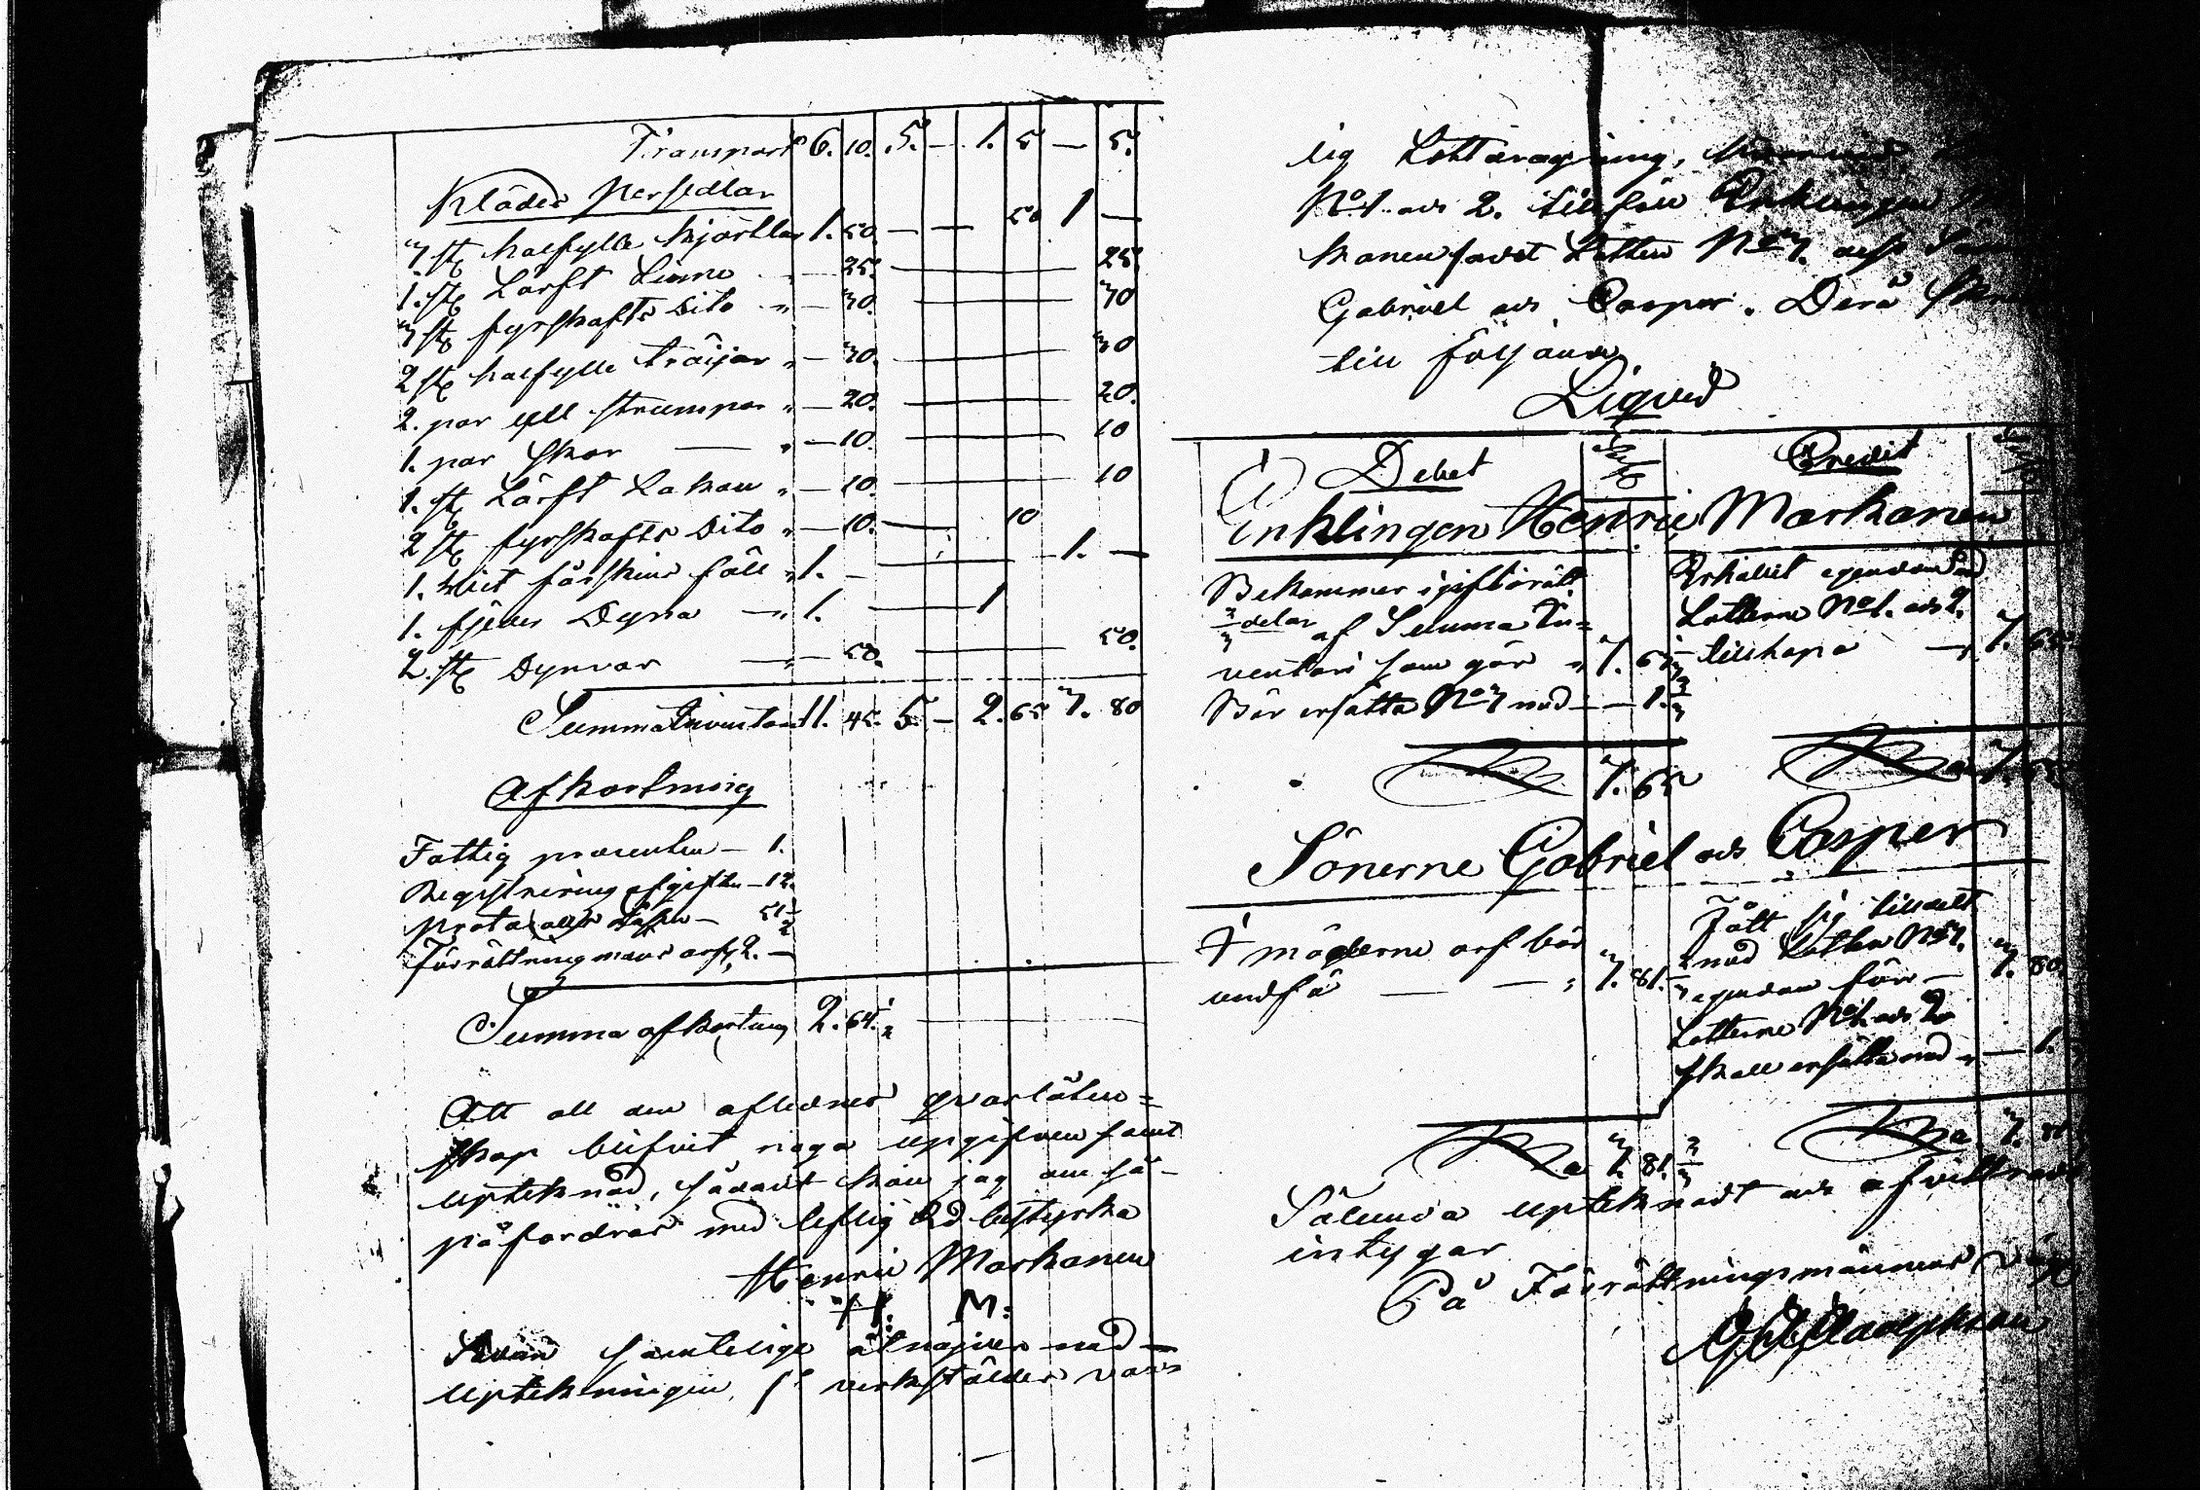 Transport 6. 10. 5. — 1. 5 — 5.
Kläder Persedlar
3 st halfylle kjortlar 1. 50. — — 50 1 —
1. st Lärft Linne " — 25. — 25.
3 st fyrskafts Dito " — 30. — 30
2 st halfylle tröijor " — 30. — 30
2. par yll strumpor " — 20. — 20.
1. par skor — " — 10. — 10
1. st Lärft Lakan " — 10. — 10
2 st fyrskafts Dito " — 10. — 10
1. hvit fårskins fäll " 1. — 1. —
1. fjeder Dyna — " 1. — 1
2. st Dynvar — " — 50. — 50.
Summa Inventarii 11. 45. 5. — 2. 65 3. 80
Afkortning
Fattig procenten — 1.
Registrering afgiften — 12.
Förrättningsmans arf. 2. —
Summa afkortning 2. 64 1/2
Att all den aflednes qvarlåten=
skap blifvit noga uppgifven samt
upteknad, sådant kan jag om så
påfordras med liflig Ed bestyrka
Henric Markanen
H. M:
samtelige åtnöjder med
uptekningen, verkställdes
lig Lottdragning,
No 1. och 2. tillföll Enklingen
kanen samt Lotten No 3.
Gabriel och Casper. Derå
till följande
Liqvid
Debet Credit
Enklingen Henric Markanen
Bekommer i giftorätt
2/3 delar af Summa In=
ventarii som gör " 7. 63 1/3
Bör ersätta No 3 med — — 1. 2/3
7. 65
Erhållit egendom
Lotterne No 1. och 2.
tillhopa — " 7. 65.
Sönerne Gabriel och Casper
I möderne arf bör
undfå — — " 3. 81. 2/3
Fått sig tilldelt
med Lotten No 3.
egendom för — 3. 80.
Lotterne No 1. och 2
skall ersätta med " — 1.
3. 81. 2/3
Sålunda upteknadt och afvittradt
intygar
På Förrättningsmännens väg